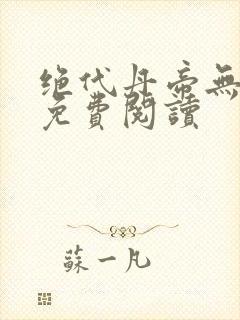 绝代丹帝無
免費閱讀
蘇一凡